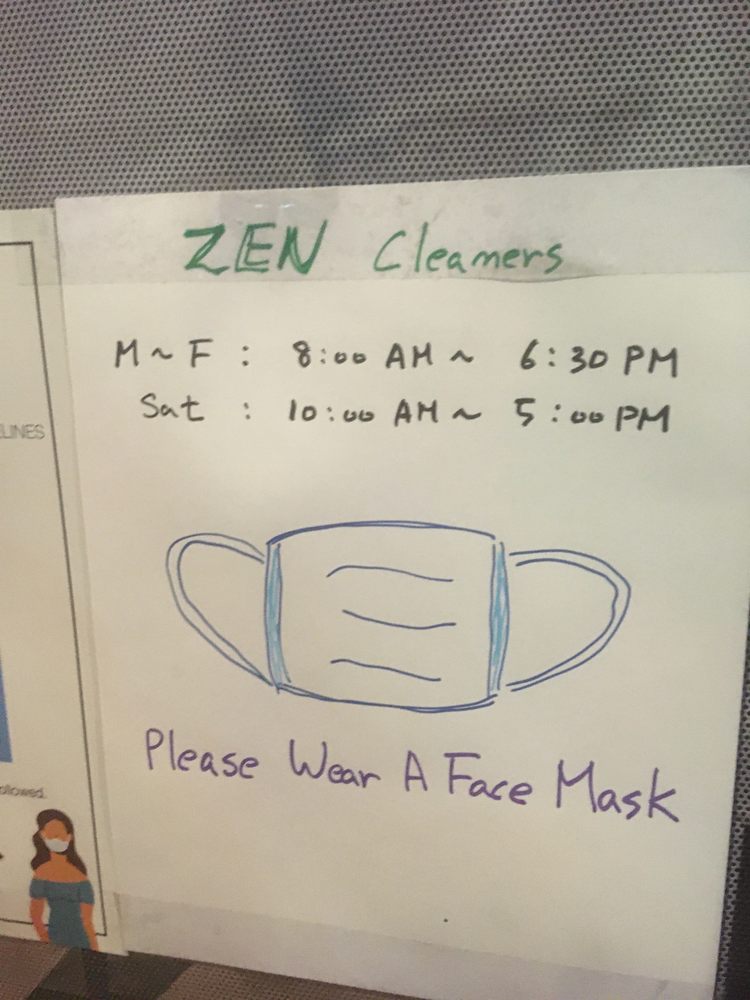 ZEN Cleaners
M ~ F : 8:00 AM ~ 6:30 PM
Sat : 10:00 AM ~ 5:00 PM
Please Wear A Face Mask
ELINES
ollowed.